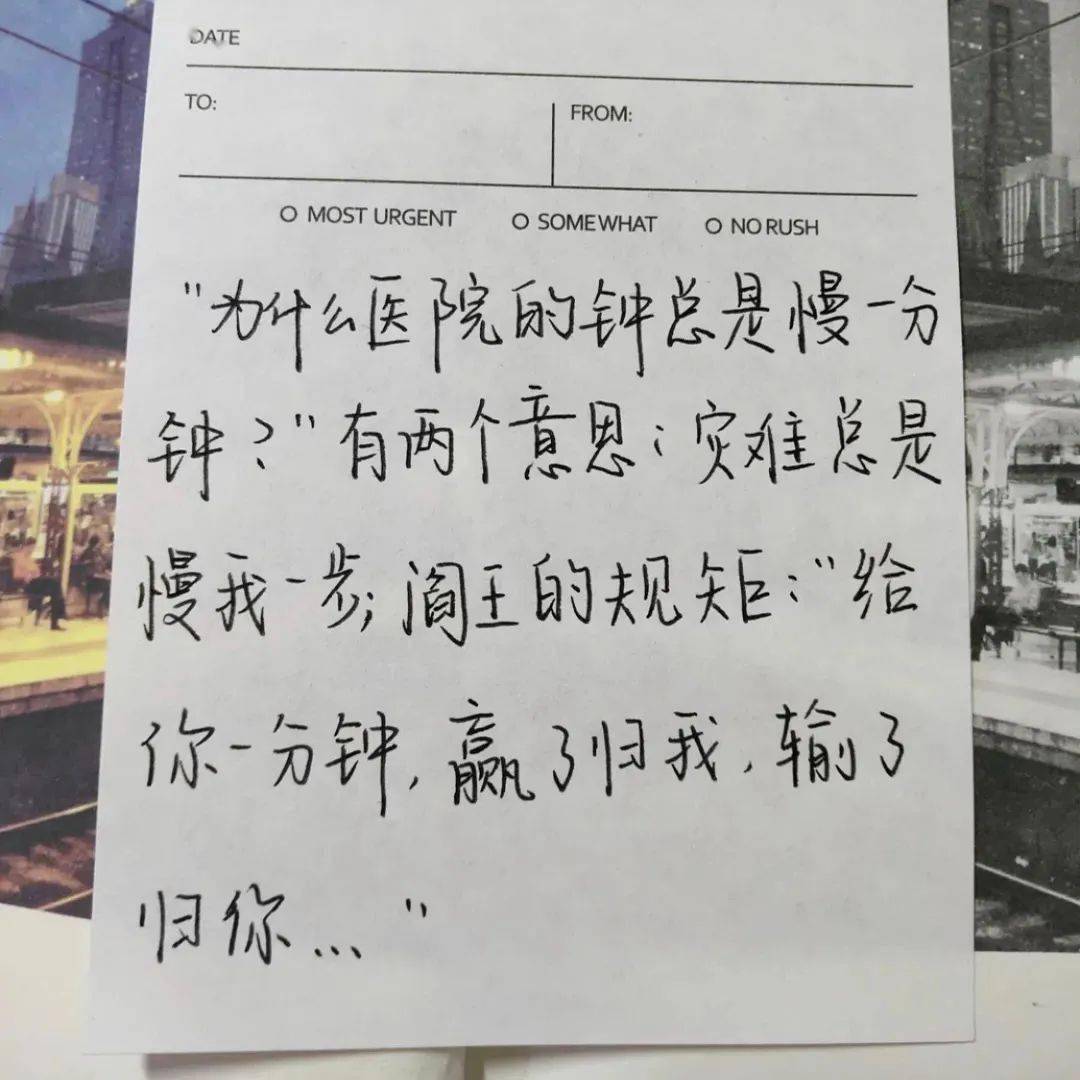 DATE
TO:
FROM:
O MOST URGENT O SOMEWHAT O NO RUSH
"为什么医院的钟总是慢一分
钟?"有两个意思:灾难总是
慢我一步;阎王的规矩:"给
你一分钟,赢了归我,输了
归你..."